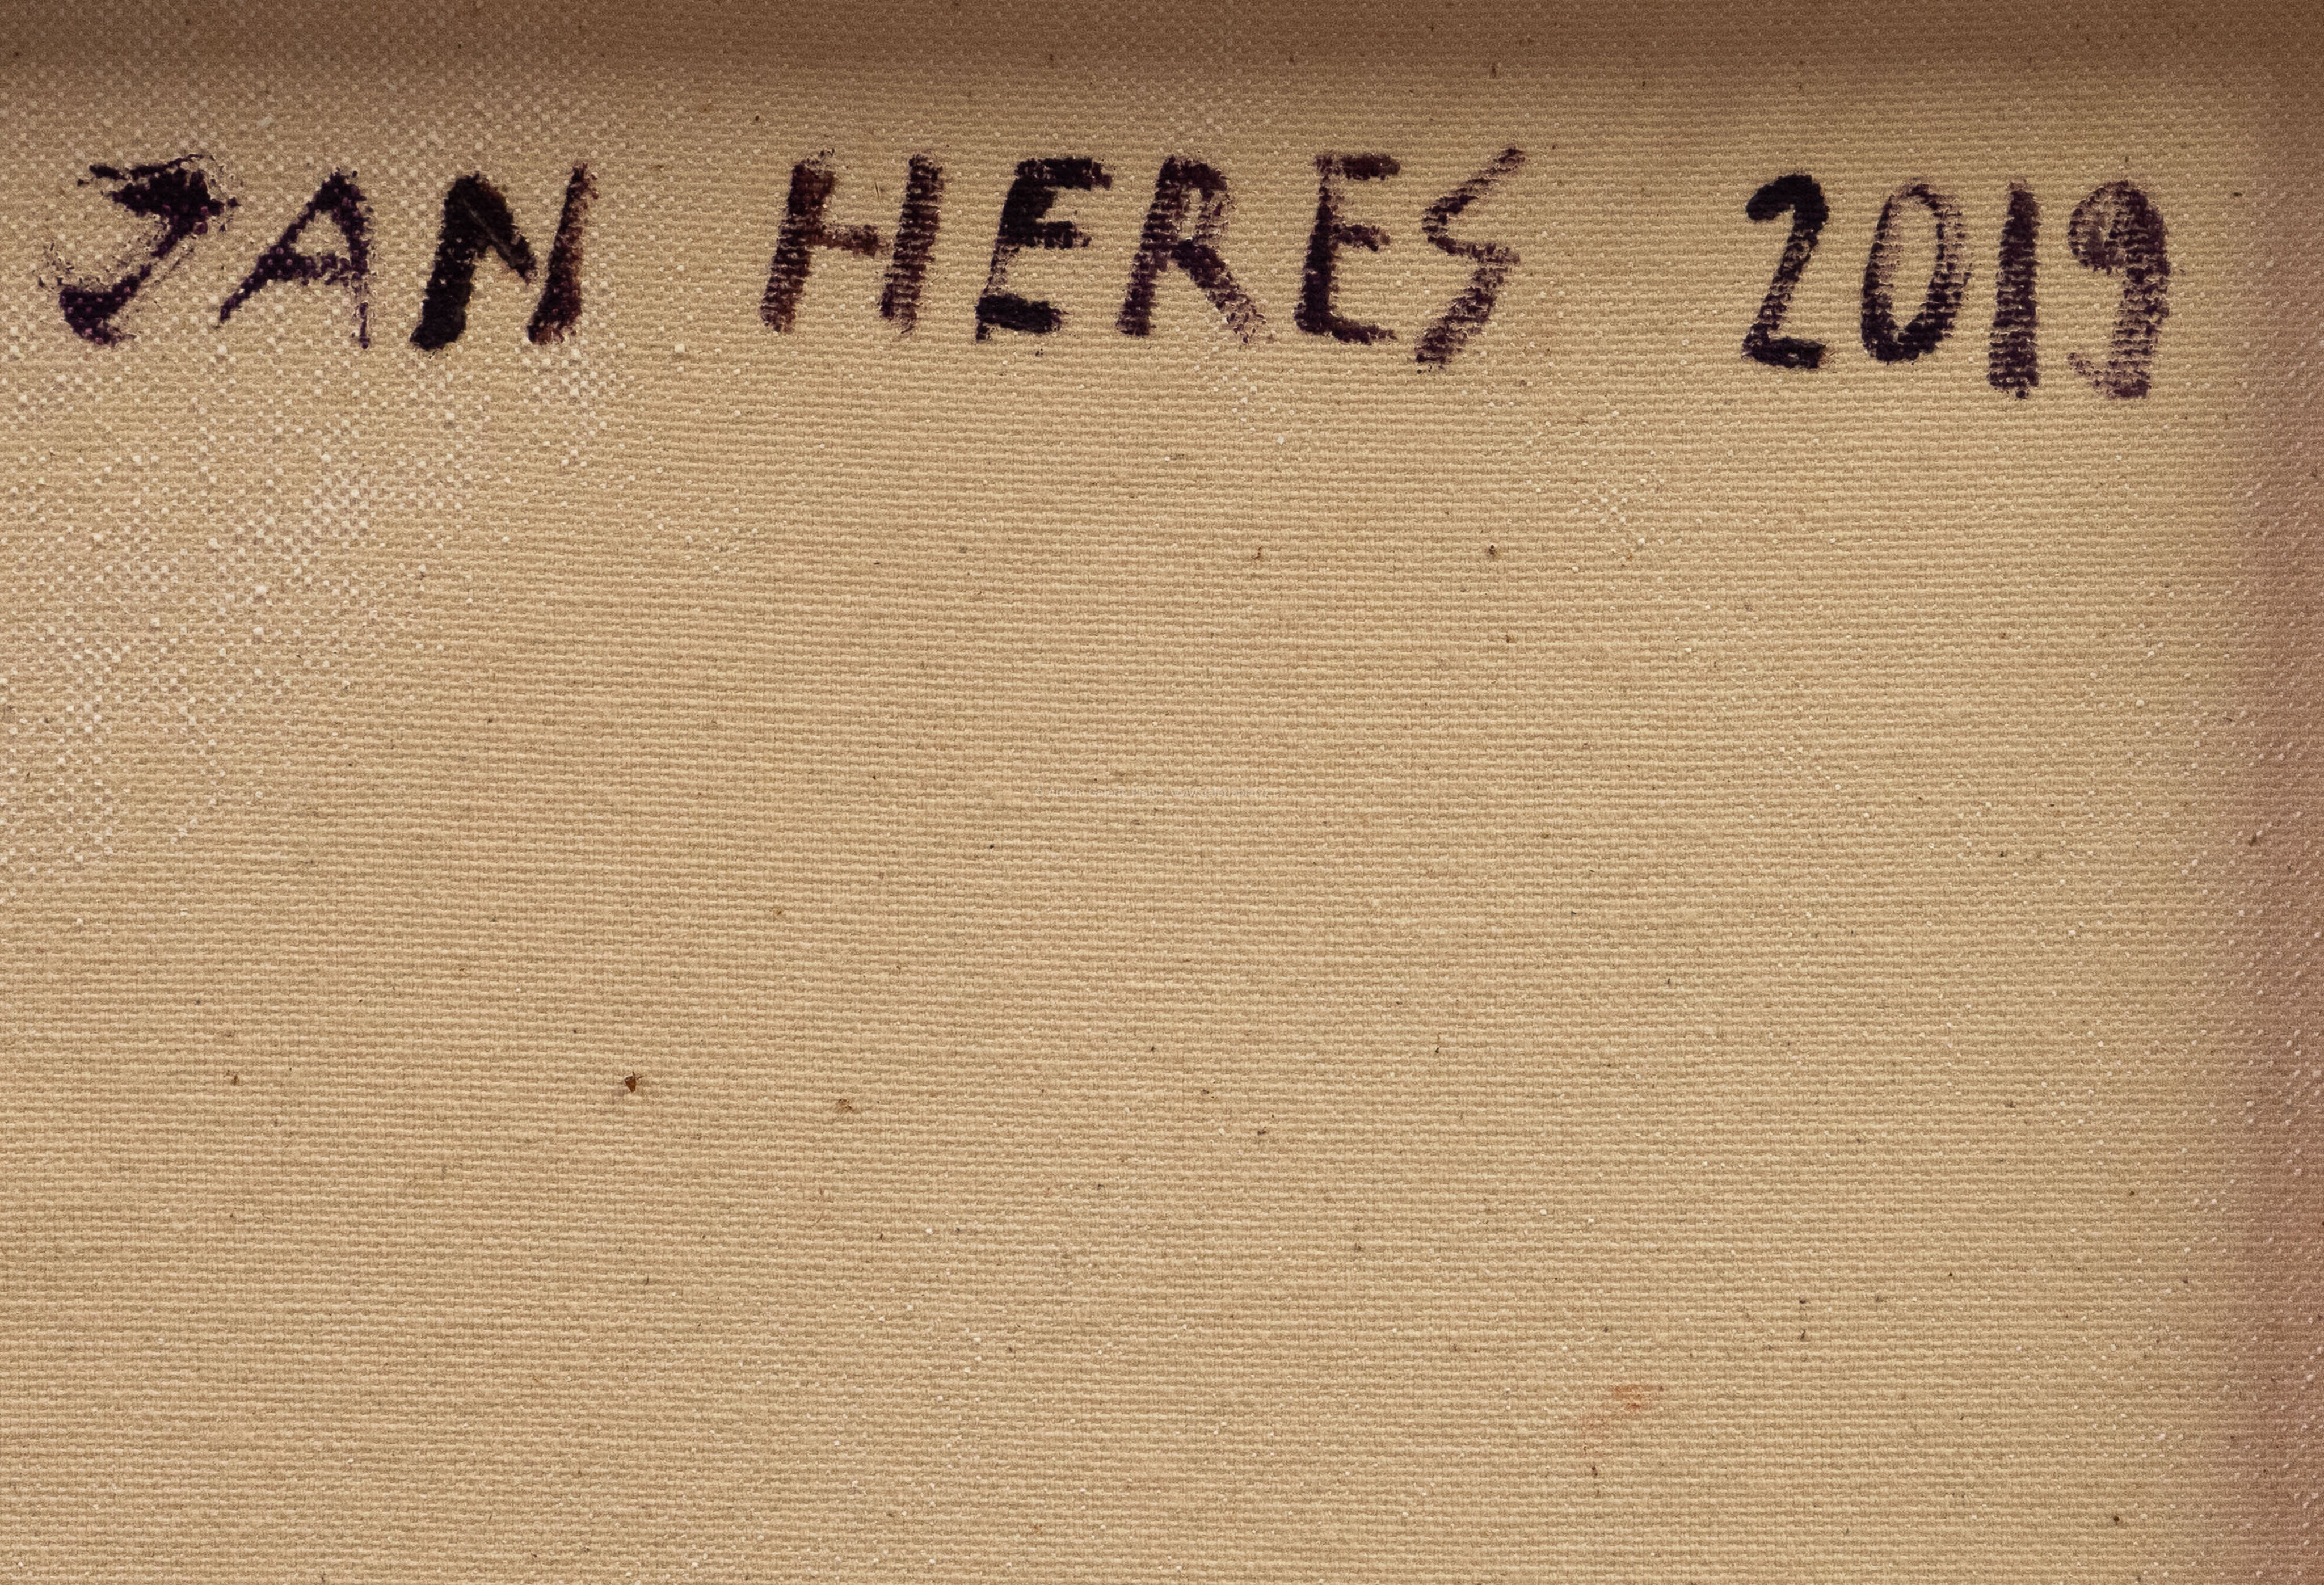 JAN HERES 2019